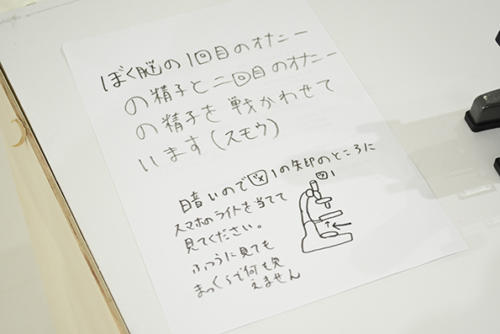 ぼく脳の1回目のオナニー
の精子と二回目のオナニー
の精子を戦かわせて
います(スモウ)
暗いので図1の矢印のところに
スマホのライトを当てて
見てください。
ふつうに見ても
まっくらで何も見
えません
図1